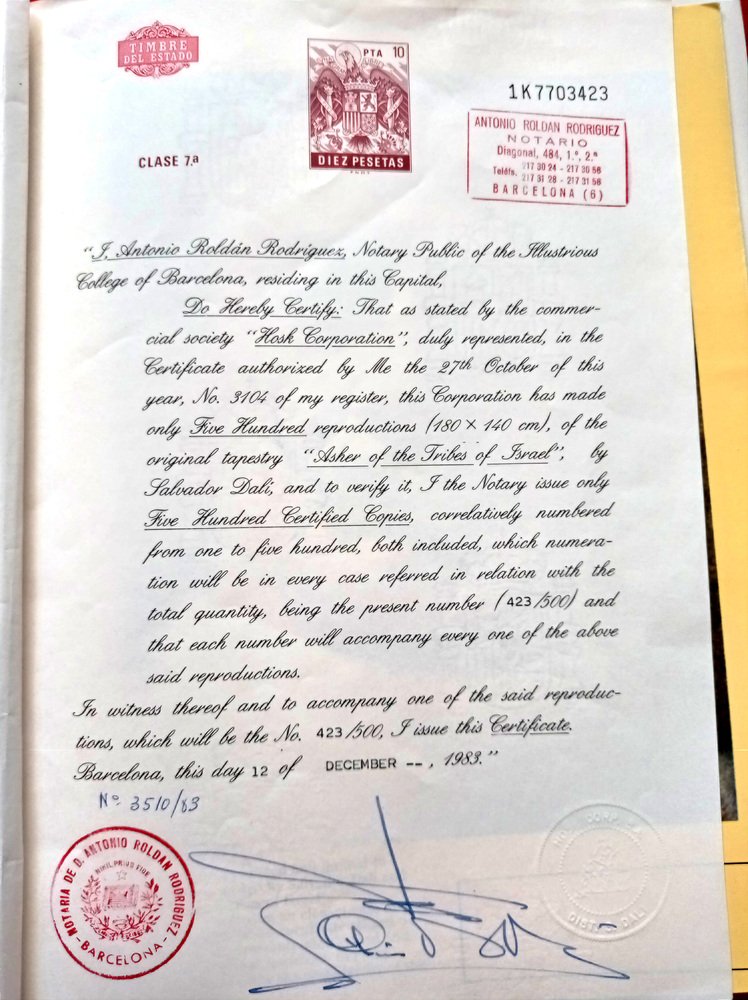 TIMBRE
DEL ESTADO
PTA 10
DIEZ PESETAS
CLASE 7.ª
1K7703423
ANTONIO ROLDAN RODRIGUEZ
NOTARIO
Diagonal, 484, 1.º, 2.ª
Teléfs. 217 30 24 - 217 30 56
217 31 28 - 217 31 56
BARCELONA (6)
"I, Antonio Roldán Rodriguez, Notary Public of the Illustrious
College of Barcelona, residing in this Capital,
Do Hereby Certify: That as stated by the commer-
cial society "Hosk Corporation", duly represented, in the
Certificate authorized by Me the 27th October of this
year, No. 3104 of my register, this Corporation has made
only Five Hundred reproductions (180 × 140 cm), of the
original tapestry "Asher of the Tribes of Israel", by
Salvador Dalí, and to verify it, I the Notary issue only
Five Hundred Certified Copies, correlatively numbered
from one to five hundred, both included, which numera-
tion will be in every case referred in relation with the
total quantity, being the present number (423/500) and
that each number will accompany every one of the above
said reproductions.
In witness thereof and to accompany one of the said reproduc-
tions, which will be the No. 423/500, I issue this Certificate.
Barcelona, this day 12 of DECEMBER --, 1983."
Nº 3510/83
NOTARIA DE D. ANTONIO ROLDAN RODRIGUEZ
NIHIL PRIUS FIDE
- BARCELONA -